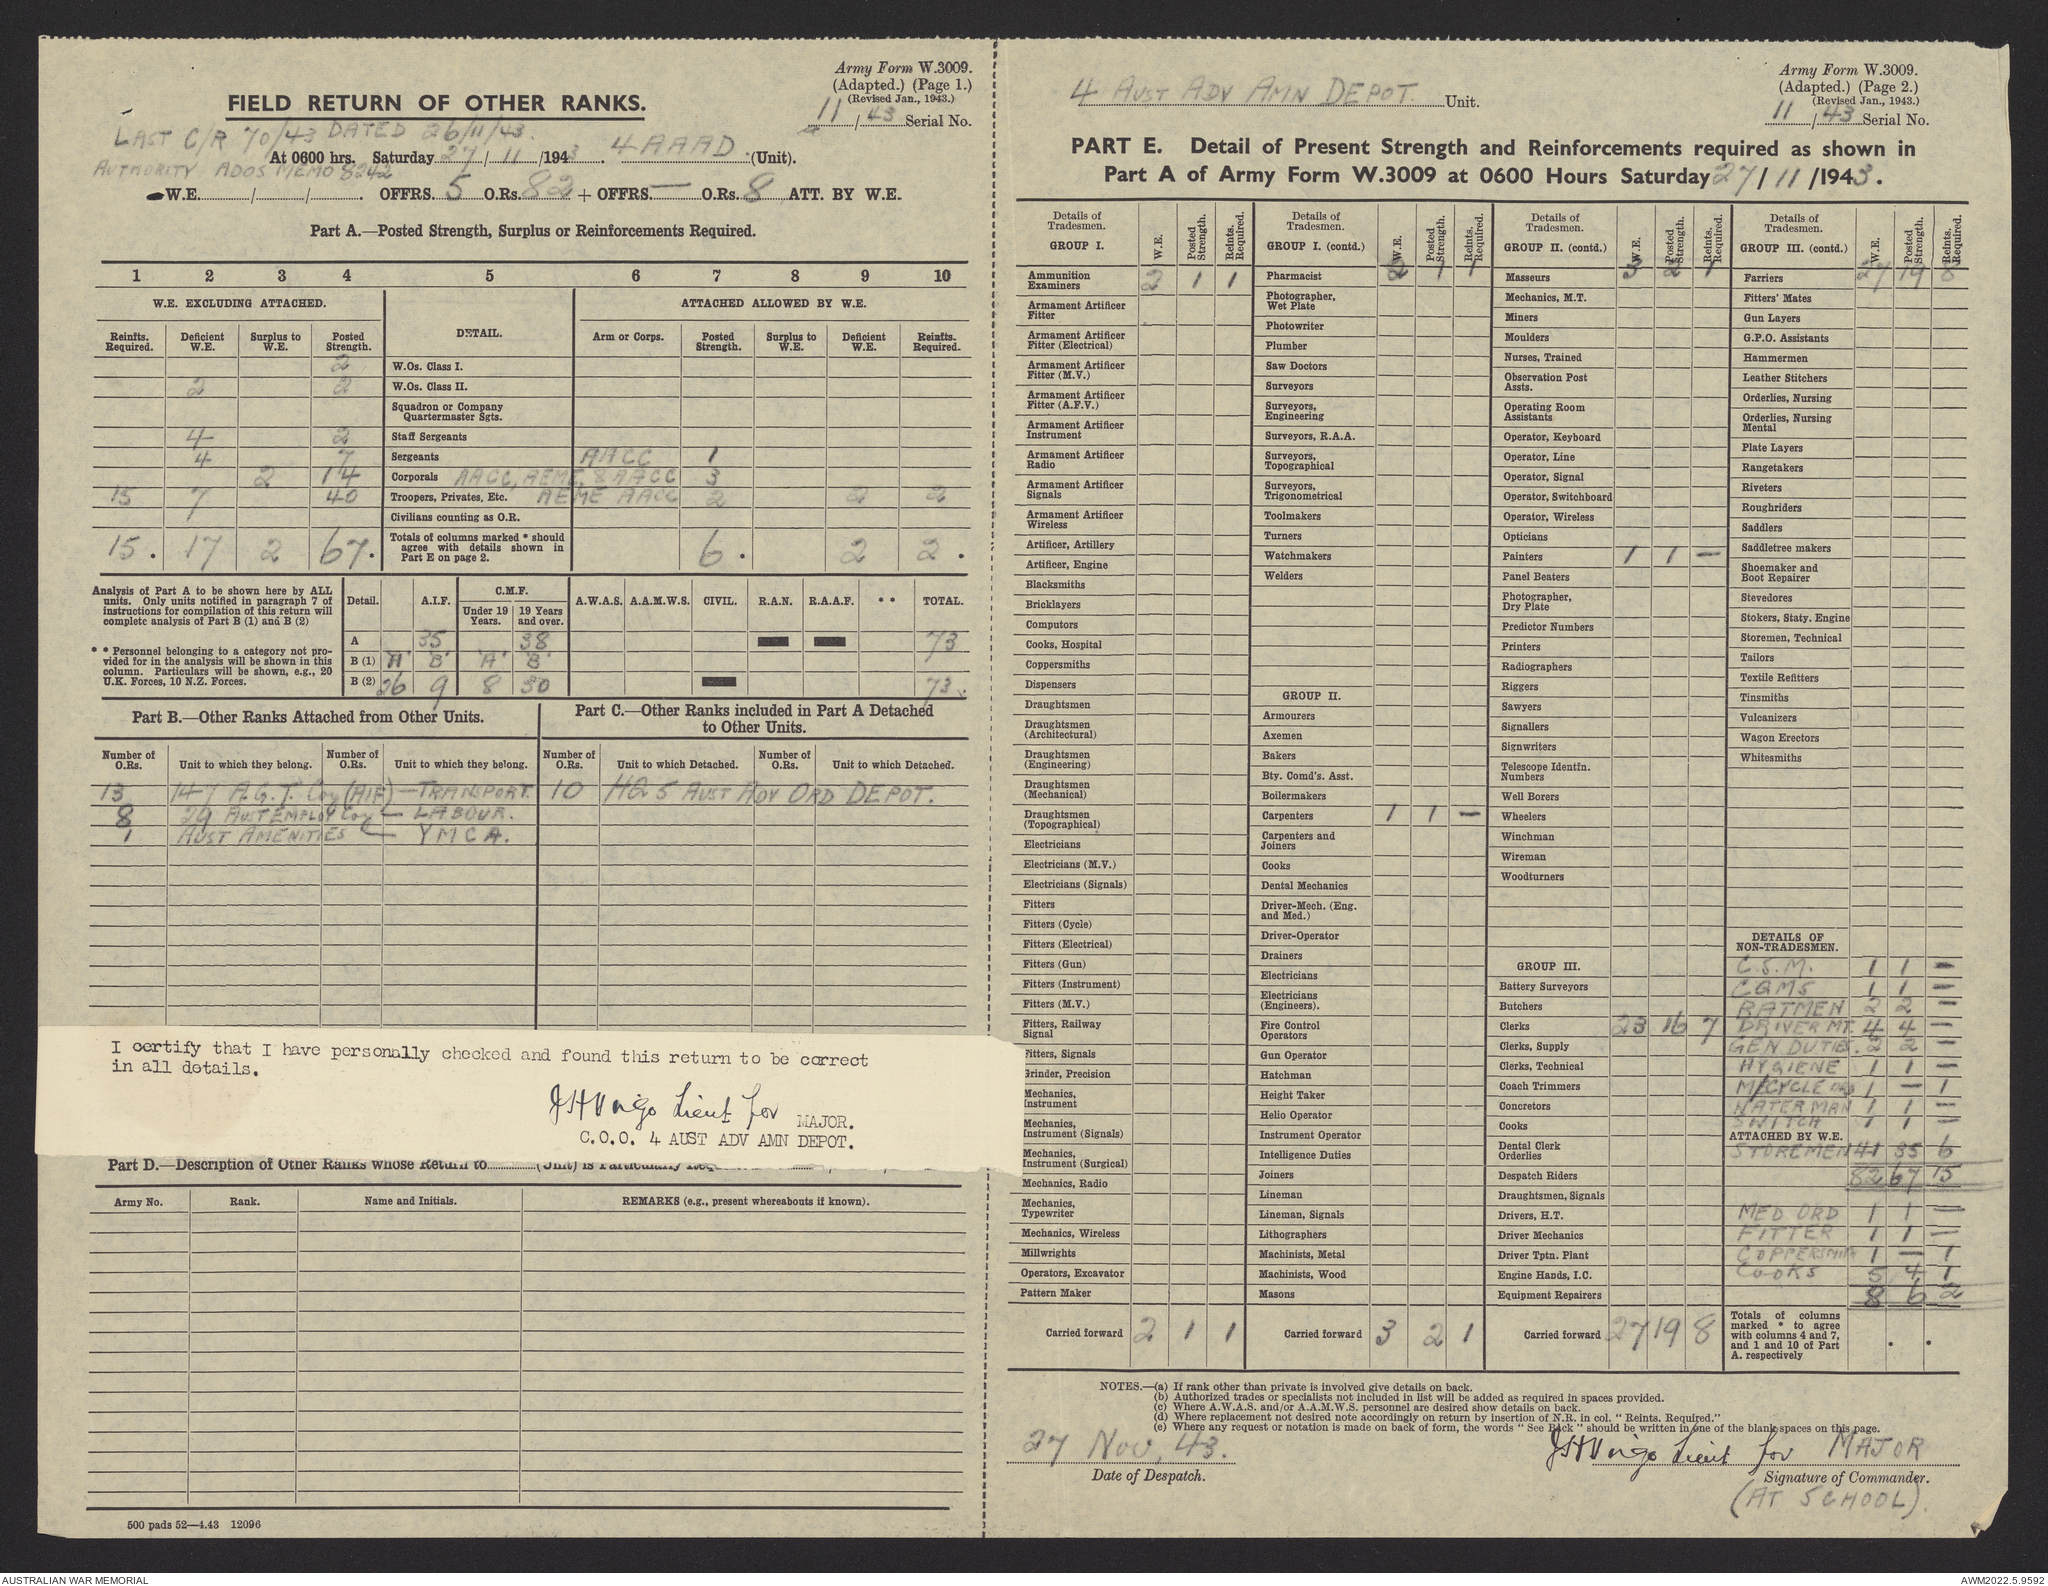 Army Form W.3009.
(Adapted.) (Page 1.)
(Revised Jan., 1943.)
11 / 43 Serial No.
FIELD RETURN OF OTHER RANKS.
LAST C/R 70/43 DATED 26/11/43.
At 0600 hrs. Saturday 27 / 11 /1943. 4 AAAD (Unit).
AUTHORITY ADOS MEMO 8242
W.E. / / . OFFRS. 5 O.Rs. 82 + OFFRS. — O.Rs. 8 ATT. BY W.E.
Part A.—Posted Strength, Surplus or Reinforcements Required.
1 2 3 4 5 6 7 8 9 10
W.E. EXCLUDING ATTACHED. DETAIL. ATTACHED ALLOWED BY W.E.
Reinfts. Required. Deficient W.E. Surplus to W.E. Posted Strength. Arm or Corps. Posted Strength. Surplus to W.E. Deficient W.E. Reinfts. Required.
2 W.Os. Class I.
2 2 W.Os. Class II.
Squadron or Company Quartermaster Sgts.
4 2 Staff Sergeants
4 7 Sergeants AACC 1
2 14 Corporals AACC, AEME, & AACC 3
15 7 40 Troopers, Privates, Etc. AEME AACC 2 2 2
Civilians counting as O.R.
15. 17 2 67. Totals of columns marked * should agree with details shown in Part E on page 2. 6. 2 2.
Analysis of Part A to be shown here by ALL units. Only units notified in paragraph 7 of instructions for compilation of this return will complete analysis of Part B (1) and B (2)
* * Personnel belonging to a category not provided for in the analysis will be shown in this column. Particulars will be shown, e.g., 20 U.K. Forces, 10 N.Z. Forces.
Detail. A.I.F. C.M.F. Under 19 Years. 19 Years and over. A.W.A.S. A.A.M.W.S. CIVIL. R.A.N. R.A.A.F. * * TOTAL.
A 35 38 73
B (1) 'A' 'B' 'A' 'B'
B (2) 26 9 8 30 73
Part B.—Other Ranks Attached from Other Units.
Part C.—Other Ranks included in Part A Detached to Other Units.
Number of O.Rs. Unit to which they belong. Number of O.Rs. Unit to which they belong. Number of O.Rs. Unit to which Detached. Number of O.Rs. Unit to which Detached.
13 147 A.G.T. Coy (AIF) — TRANSPORT. 10 HQ 5 AUST ADV ORD DEPOT.
8 29 AUST EMPLOY Coy — LABOUR.
1 AUST AMENITIES — YMCA.
I certify that I have personally checked and found this return to be correct
in all details.
Lieut for MAJOR.
C.O.O. 4 AUST ADV AMN DEPOT.
Part D.—Description of Other Ranks whose Return to (Unit) is Particularly
Army No. Rank. Name and Initials. REMARKS (e.g., present whereabouts if known).
500 pads 52—4.43 12096
Army Form W.3009.
(Adapted.) (Page 2.)
(Revised Jan., 1943.)
11 / 43 Serial No.
4 AUST ADV AMN DEPOT. Unit.
PART E. Detail of Present Strength and Reinforcements required as shown in
Part A of Army Form W.3009 at 0600 Hours Saturday 27/ 11 /1943.
Details of Tradesmen. GROUP I. W.E. Posted Strength. Reints. Required.
Ammunition Examiners 2 1 1
Armament Artificer Fitter
Armament Artificer Fitter (Electrical)
Armament Artificer Fitter (M.V.)
Armament Artificer Fitter (A.F.V.)
Armament Artificer Instrument
Armament Artificer Radio
Armament Artificer Signals
Armament Artificer Wireless
Artificer, Artillery
Artificer, Engine
Blacksmiths
Bricklayers
Computors
Cooks, Hospital
Coppersmiths
Dispensers
Draughtsmen
Draughtsmen (Architectural)
Draughtsmen (Engineering)
Draughtsmen (Mechanical)
Draughtsmen (Topographical)
Electricians
Electricians (M.V.)
Electricians (Signals)
Fitters
Fitters (Cycle)
Fitters (Electrical)
Fitters (Gun)
Fitters (Instrument)
Fitters (M.V.)
Fitters, Railway Signal
Fitters, Signals
Grinder, Precision
Mechanics, Instrument
Mechanics, Instrument (Signals)
Mechanics, Instrument (Surgical)
Mechanics, Radio
Mechanics, Typewriter
Mechanics, Wireless
Millwrights
Operators, Excavator
Pattern Maker
Carried forward 2 1 1
Details of Tradesmen. GROUP I. (contd.) W.E. Posted Strength. Reints. Required.
Pharmacist 2 1 1
Photographer, Wet Plate
Photowriter
Plumber
Saw Doctors
Surveyors
Surveyors, Engineering
Surveyors, R.A.A.
Surveyors, Topographical
Surveyors, Trigonometrical
Toolmakers
Turners
Watchmakers
Welders
GROUP II.
Armourers
Axemen
Bakers
Bty. Comd's. Asst.
Boilermakers
Carpenters 1 1 —
Carpenters and Joiners
Cooks
Dental Mechanics
Driver-Mech. (Eng. and Med.)
Driver-Operator
Drainers
Electricians
Electricians (Engineers).
Fire Control Operators
Gun Operator
Hatchman
Height Taker
Helio Operator
Instrument Operator
Intelligence Duties
Joiners
Lineman
Lineman, Signals
Lithographers
Machinists, Metal
Machinists, Wood
Masons
Carried forward 3 2 1
Details of Tradesmen. GROUP II. (contd.) W.E. Posted Strength. Reints. Required.
Masseurs 3 2 1
Mechanics, M.T.
Miners
Moulders
Nurses, Trained
Observation Post Assts.
Operating Room Assistants
Operator, Keyboard
Operator, Line
Operator, Signal
Operator, Switchboard
Operator, Wireless
Opticians
Painters 1 1 —
Panel Beaters
Photographer, Dry Plate
Predictor Numbers
Printers
Radiographers
Riggers
Sawyers
Signallers
Signwriters
Telescope Identfn. Numbers
Well Borers
Wheelers
Winchman
Wireman
Woodturners
GROUP III.
Battery Surveyors
Butchers
Clerks 23 16 7
Clerks, Supply
Clerks, Technical
Coach Trimmers
Concretors
Cooks
Dental Clerk Orderlies
Despatch Riders
Draughtsmen, Signals
Drivers, H.T.
Driver Mechanics
Driver Tptn. Plant
Engine Hands, I.C.
Equipment Repairers
Carried forward 27 19 8
Details of Tradesmen. GROUP III. (contd.) W.E. Posted Strength. Reints. Required.
Farriers 27 19 8
Fitters' Mates
Gun Layers
G.P.O. Assistants
Hammermen
Leather Stitchers
Orderlies, Nursing
Orderlies, Nursing Mental
Plate Layers
Rangetakers
Riveters
Roughriders
Saddlers
Saddletree makers
Shoemaker and Boot Repairer
Stevedores
Stokers, Staty. Engine
Storemen, Technical
Tailors
Textile Refitters
Tinsmiths
Vulcanizers
Wagon Erectors
Whitesmiths
DETAILS OF NON-TRADESMEN.
C.S.M. 1 1 —
CQMS 1 1 —
BATMEN 2 2 —
DRIVER MT. 4 4 —
GEN DUTIES. 2 2 —
HYGIENE 1 1 —
M/CYCLE 1 — 1
WATERMAN 1 1 —
SWITCH 1 1 —
ATTACHED BY W.E.
STOREMEN 41 35 6
82 67 15
MED ORD 1 1 —
FITTER 1 1 —
COPPERSMITH 1 — 1
COOKS 5 4 1
8 6 2
Totals of columns marked * to agree with columns 4 and 7, and 1 and 10 of Part A. respectively
NOTES.—(a) If rank other than private is involved give details on back.
(b) Authorized trades or specialists not included in list will be added as required in spaces provided.
(c) Where A.W.A.S. and/or A.A.M.W.S. personnel are desired show details on back.
(d) Where replacement not desired note accordingly on return by insertion of N.R. in col. " Reints. Required."
(e) Where any request or notation is made on back of form, the words " See Back " should be written in one of the blank spaces on this page.
27 Nov, 43.
Date of Despatch.
Lieut for MAJOR
Signature of Commander.
(AT SCHOOL).
AUSTRALIAN WAR MEMORIAL
AWM2022.5.9592